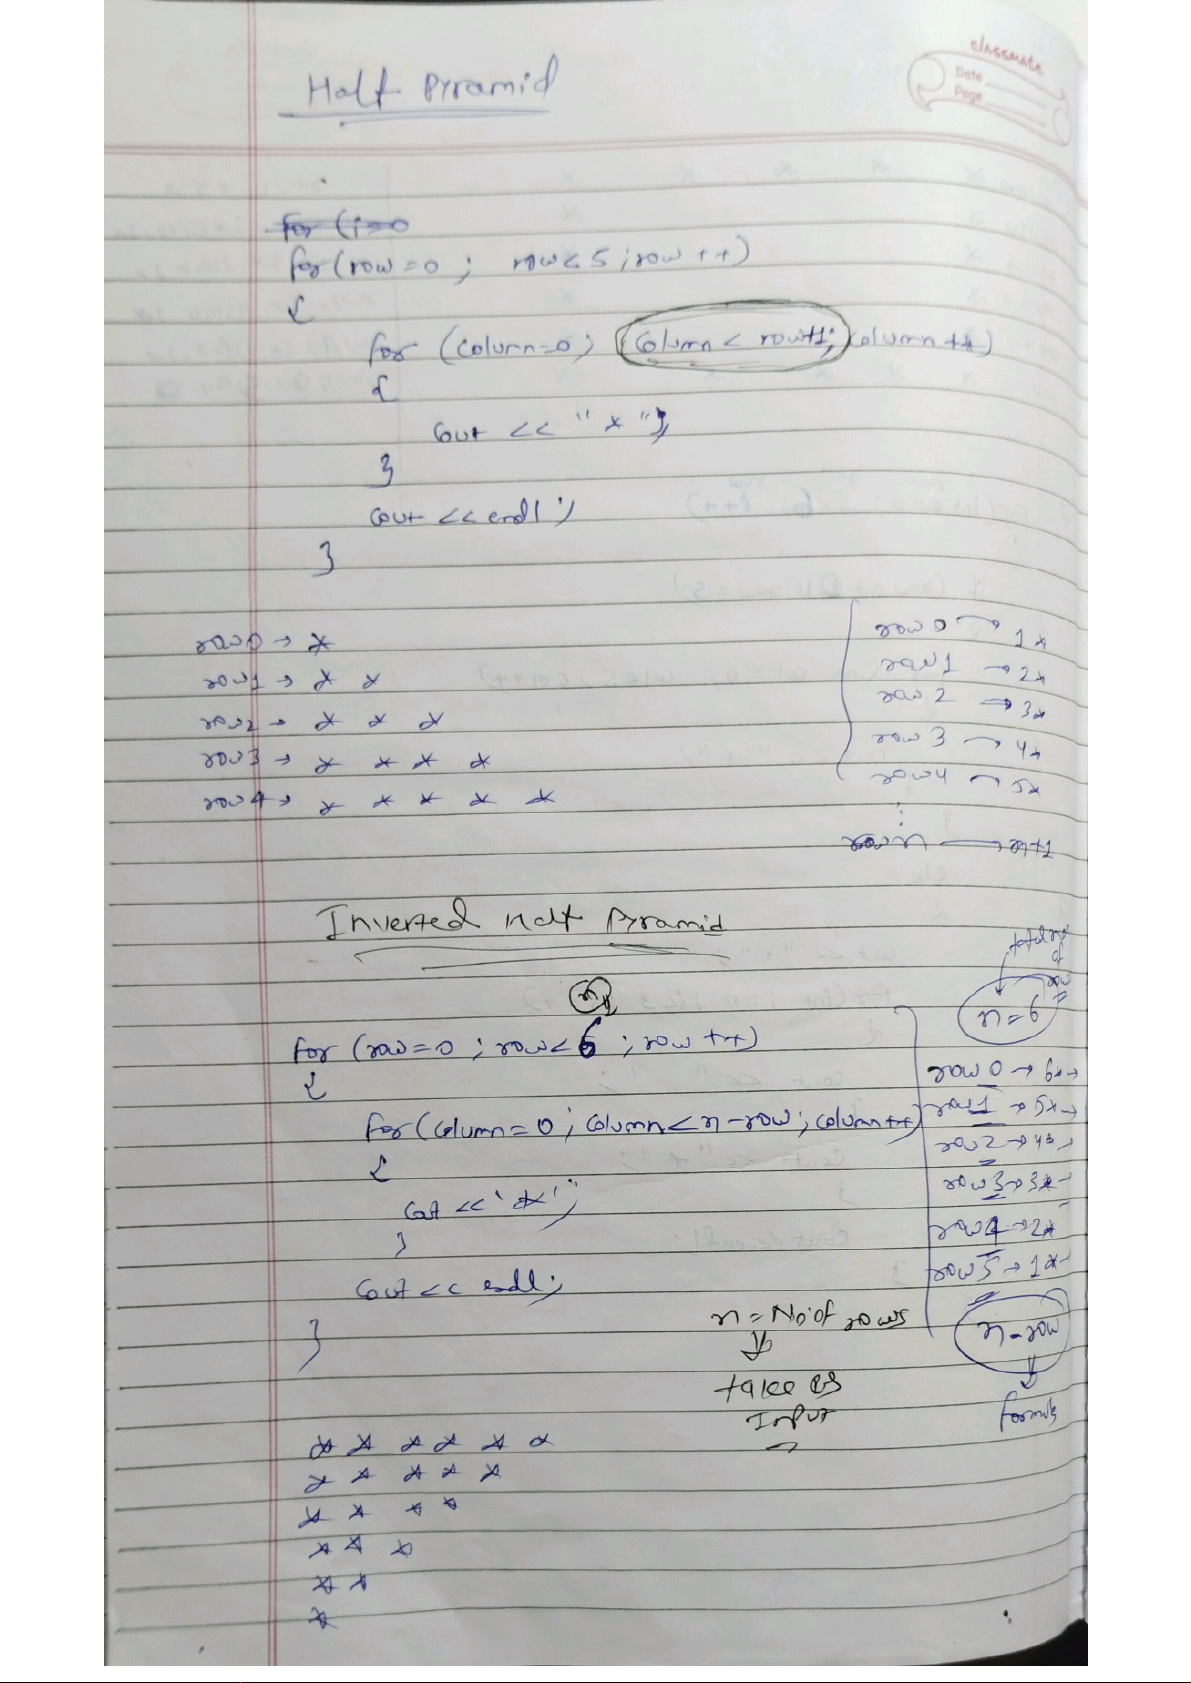 classmate
Date
Page
Half Pyramid
for (i=0
for (row=0 ; row<5 ; row++)
{
for (column=0; column < row+1; column++)
{
cout << "*";
}
cout << endl;
}
row0 → *
row1 → * *
row2 → * * *
row3 → * * * *
row4 → * * * * *
row 0 → 1*
row 1 → 2*
row 2 → 3*
row 3 → 4*
row 4 → 5*
row n → n+1
Inverted Half Pyramid
n
for (row=0 ; row<6 ; row++)
{
for (column=0 ; column<n-row ; column++)
{
cout << '*';
}
cout << endl;
}
n=6
row 0 → 6*
row 1 → 5*
row 2 → 4*
row 3 → 3*
row 4 → 2*
row 5 → 1*
n-row
n = No of rows
take as
Input
* * * * * *
* * * * *
* * * *
* * *
* *
*